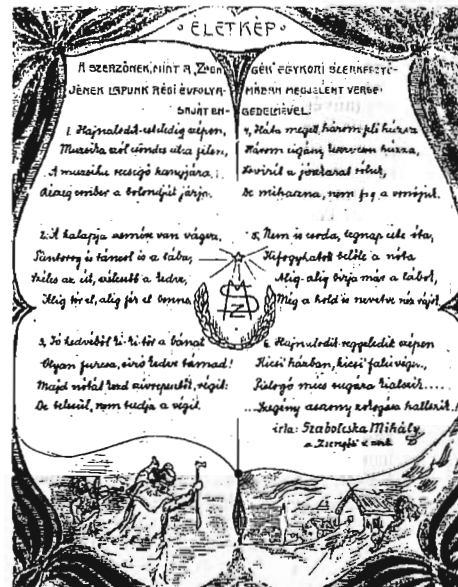 ÉLETKÉP
A SZERZŐNEK, MINT A "ZSEN GÉK" EGYKORI SZERKESZTŐ-
JÉNEK LAPUNK RÉGI ÉVFOLYA- MÁBAN MEGJELENT VERSE
SAJÁT EN- GEDELMÉVEL.
1. Hajnalodik szépen,
Muzsika szól csöndes utca
A muzsika recsegő
Részeg ember a bolondját járja.
2. A kalapja szemére van vágva,
Sántorog és táncol is a lába,
Széles az út, szélesebb a kedve,
Alig fér el benne.
3. Jó kedvéből ki-ki tör a bánat
Olyan furcsa, síró kedve támad!
Majd nótát kezd szivrepesztőt, régit:
De nem tudja a végit.
4. Háta megett, három
Három cigány húzza,
De mihaszna, nem fog a vonójuk.
5. Nem is csoda, tegnap este óta,
Kifogyhatott belőle a nóta
Alig-alig birja már a lábok,
Még a hold is nevetve néz rájok.
6. Hajnalodik-reggeledik szépen
Kicsi házban, kicsi falu végén,
Pislogó mécs sugára kialszik.....
...Szegény asszony zokogása hallszik.!
irta: Szabolcska Mihály
MSZ